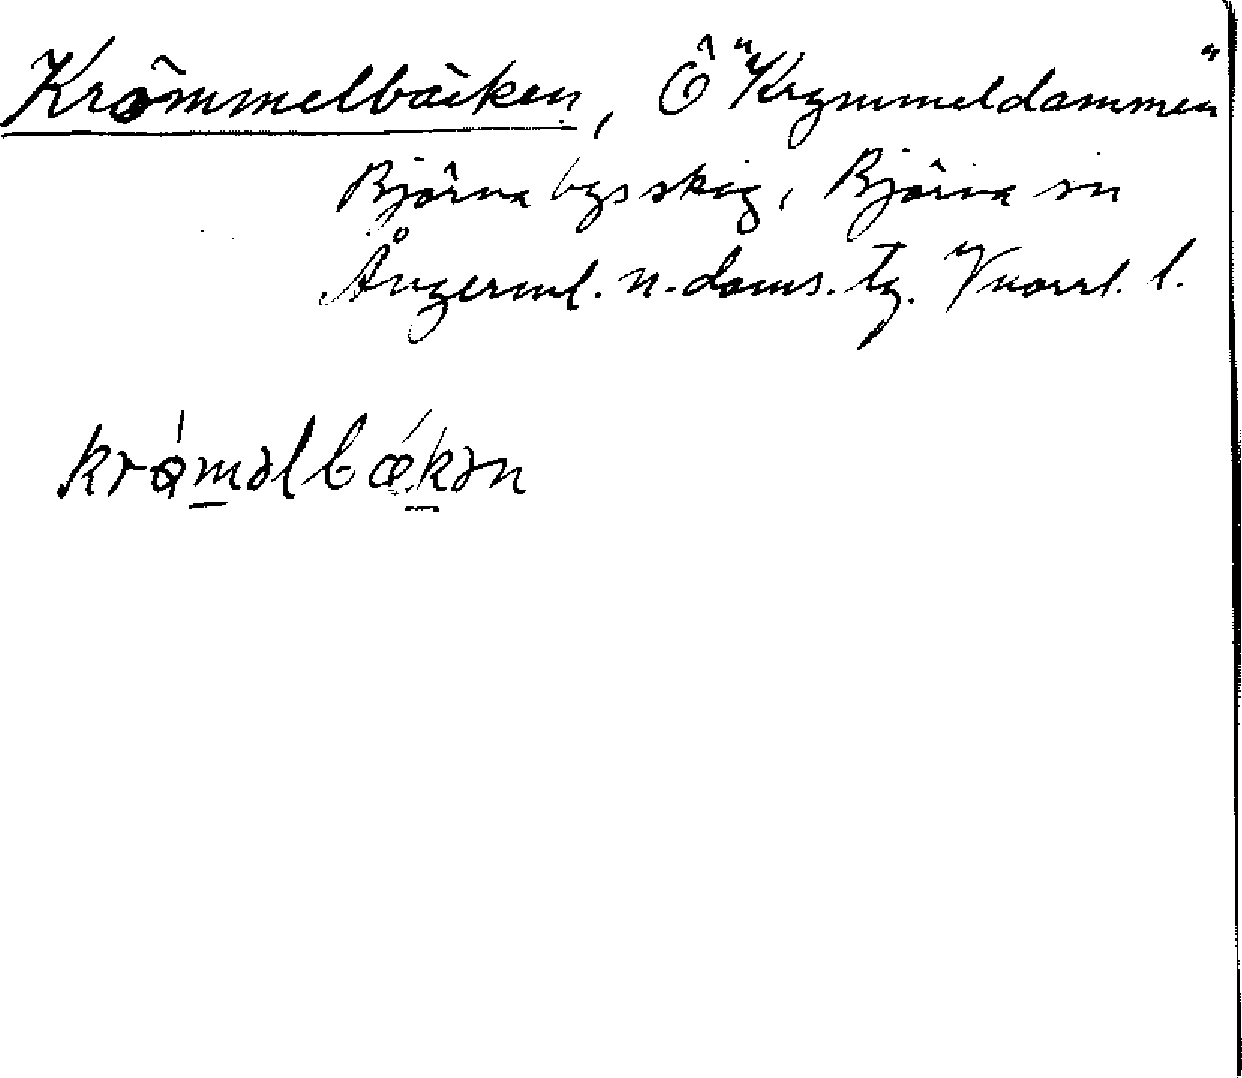 Krömmelbäcken, Ö "Krymmeldammen"
Björna bys skog, Björna sn
Ångerml. n. doms. tg. Vnorrl. l.
krø̀məlbæ̀kən